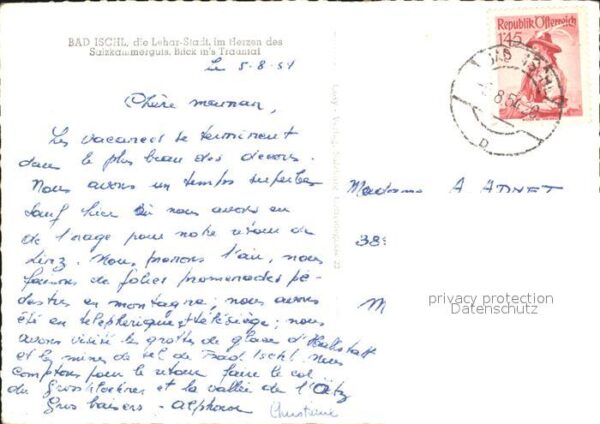 BAD ISCHL, die Lehar-Stadt, im Herzen des
Salzkammerguts, Blick in's Trauntal
Le 5-8-54
Chère maman,
Les vacances se terminent
dans le plus beau des décors.
Nous avons un temps superbe
sauf hier où nous avons eu
de l'orage pour notre retour de
Linz. Nous prenons l'air, nous
faisons de jolies promenades pé-
destres en montagne, nous avons
été en téléphérique et télésiège; nous
avons visité les grottes de glace d'Hallstatt
et les mines de sel de Bad. Ischl. Nous
comptons pour le retour faire le col
du Grossglockner et la vallée de l'Ötz
Gros baisers - Alphonse
Christiane
Republik Österreich
1'45
BAD ISCHL
8.54
D
Madame A ADNET
38
M
privacy protection
Datenschutz